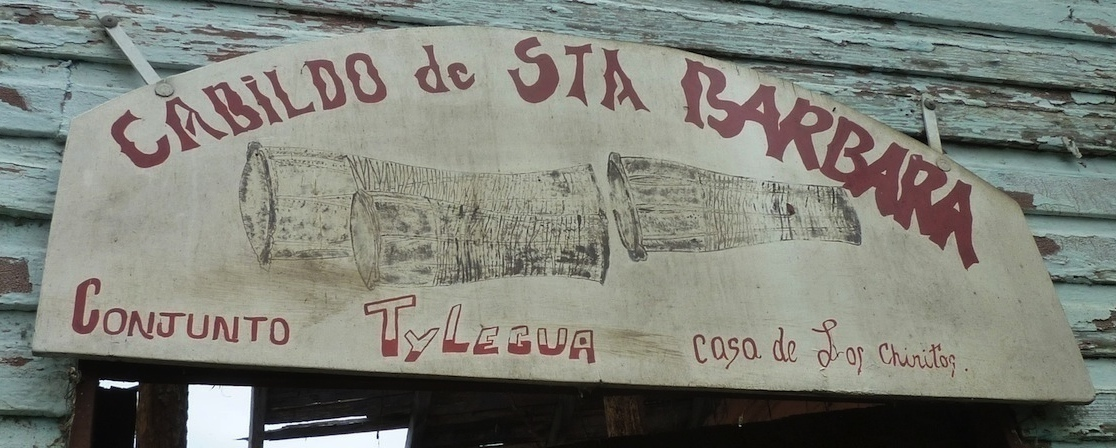 CABILDO de STA BARBARA
CONJUNTO TyLEGUA casa de Los Chinitos.